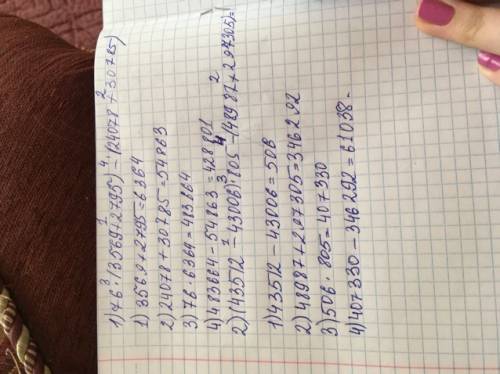 1) 76·(3569+2795)-(24078+30785)
1) 3569+2795=6364
2) 24078+30785=54863
3) 76·6364=483664
4) 483664-54863=428801
2) (43512-43006)·805-(48987+297305)=
1) 43512-43006=506
2) 48987+297305=346292
3) 506·805=407330
4) 407330-346292=61038-